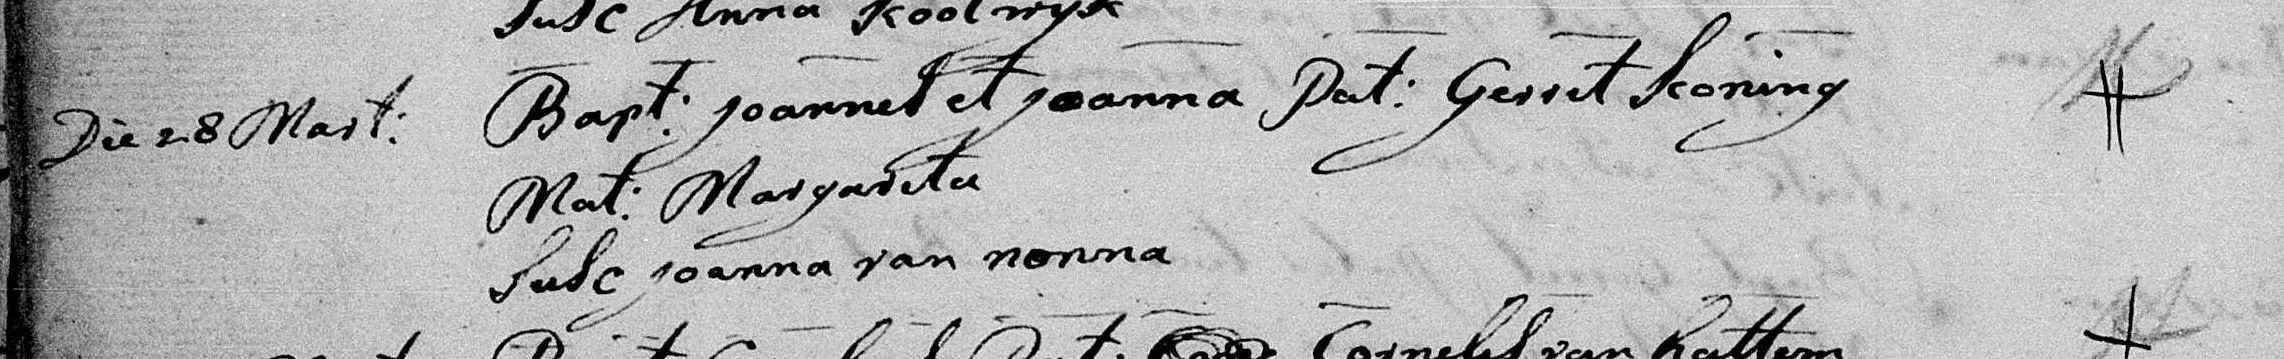 Susc Anna Koolwyk
Die 28 Mart: Bapt: joannes et joanna Pat: Gerret Koning
Mat: Margareta
Susc joanna van nonna
Bapt Pat: Cornelis van Kattem